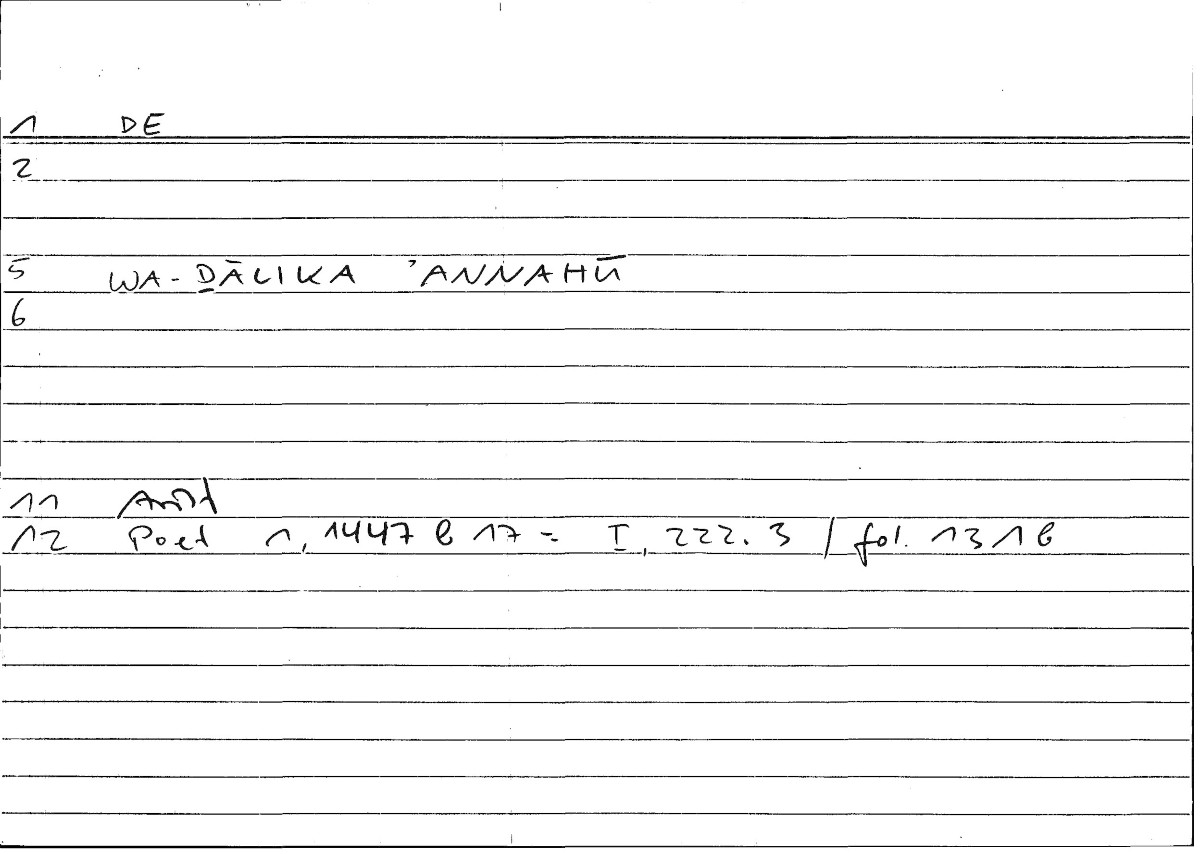 1 DE
2
5 WA-ḎĀLIKA ʾANNAHŪ
6
11 Arist
12 Poet 1, 1447 b 17 = I, 222.3 / fol. 131 b